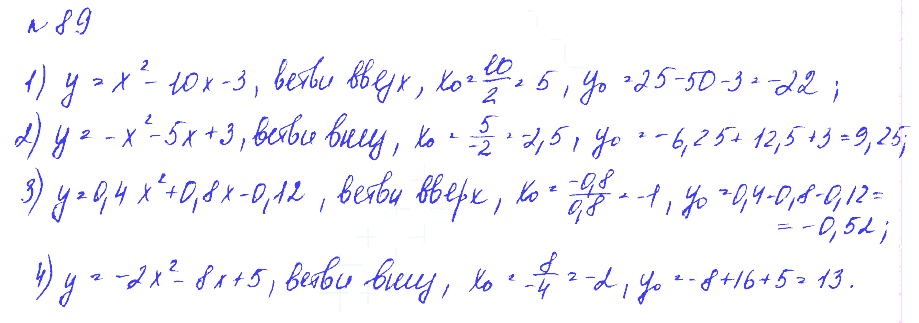 № 89
1) y = x² - 10x - 3, ветви вверх, x₀ = 10/2 = 5, y₀ = 25 - 50 - 3 = -22;
2) y = -x² - 5x + 3, ветви вниз, x₀ = 5/-2 = -2,5, y₀ = -6,25 + 12,5 + 3 = 9,25;
3) y = 0,4x² + 0,8x - 0,12, ветви вверх, x₀ = -0,8/0,8 = -1, y₀ = 0,4 - 0,8 - 0,12 =
= -0,52;
4) y = -2x² - 8x + 5, ветви вниз, x₀ = 8/-4 = -2, y₀ = -8 + 16 + 5 = 13.